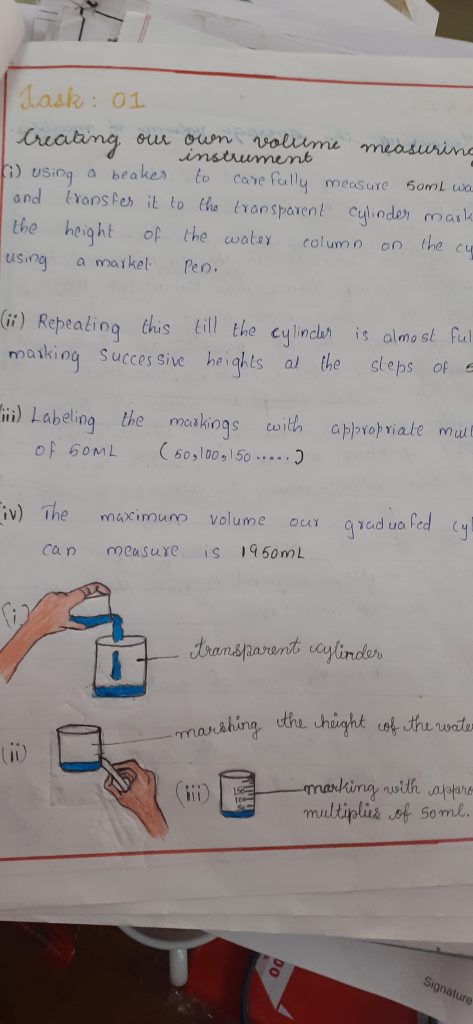 Task: 01
Creating our own volume measuring
instrument
(i) Using a beaker to carefully measure 50mL wa
and transfer it to the transparent cylinder mark
the height of the water column on the cy
using a marker Pen.
(ii) Repeating this till the cylinder is almost ful
marking successive heights at the steps of 5
(iii) Labeling the markings with appropriate mul
of 50mL (50,100,150.....)
(iv) The maximum volume our graduated cyl
can measure is 1950mL
(i)
transparent cylinder
marking the height of the wate
(ii)
(iii)
150
100
50
marking with appro
multiplies of 50ml.
00
Signature